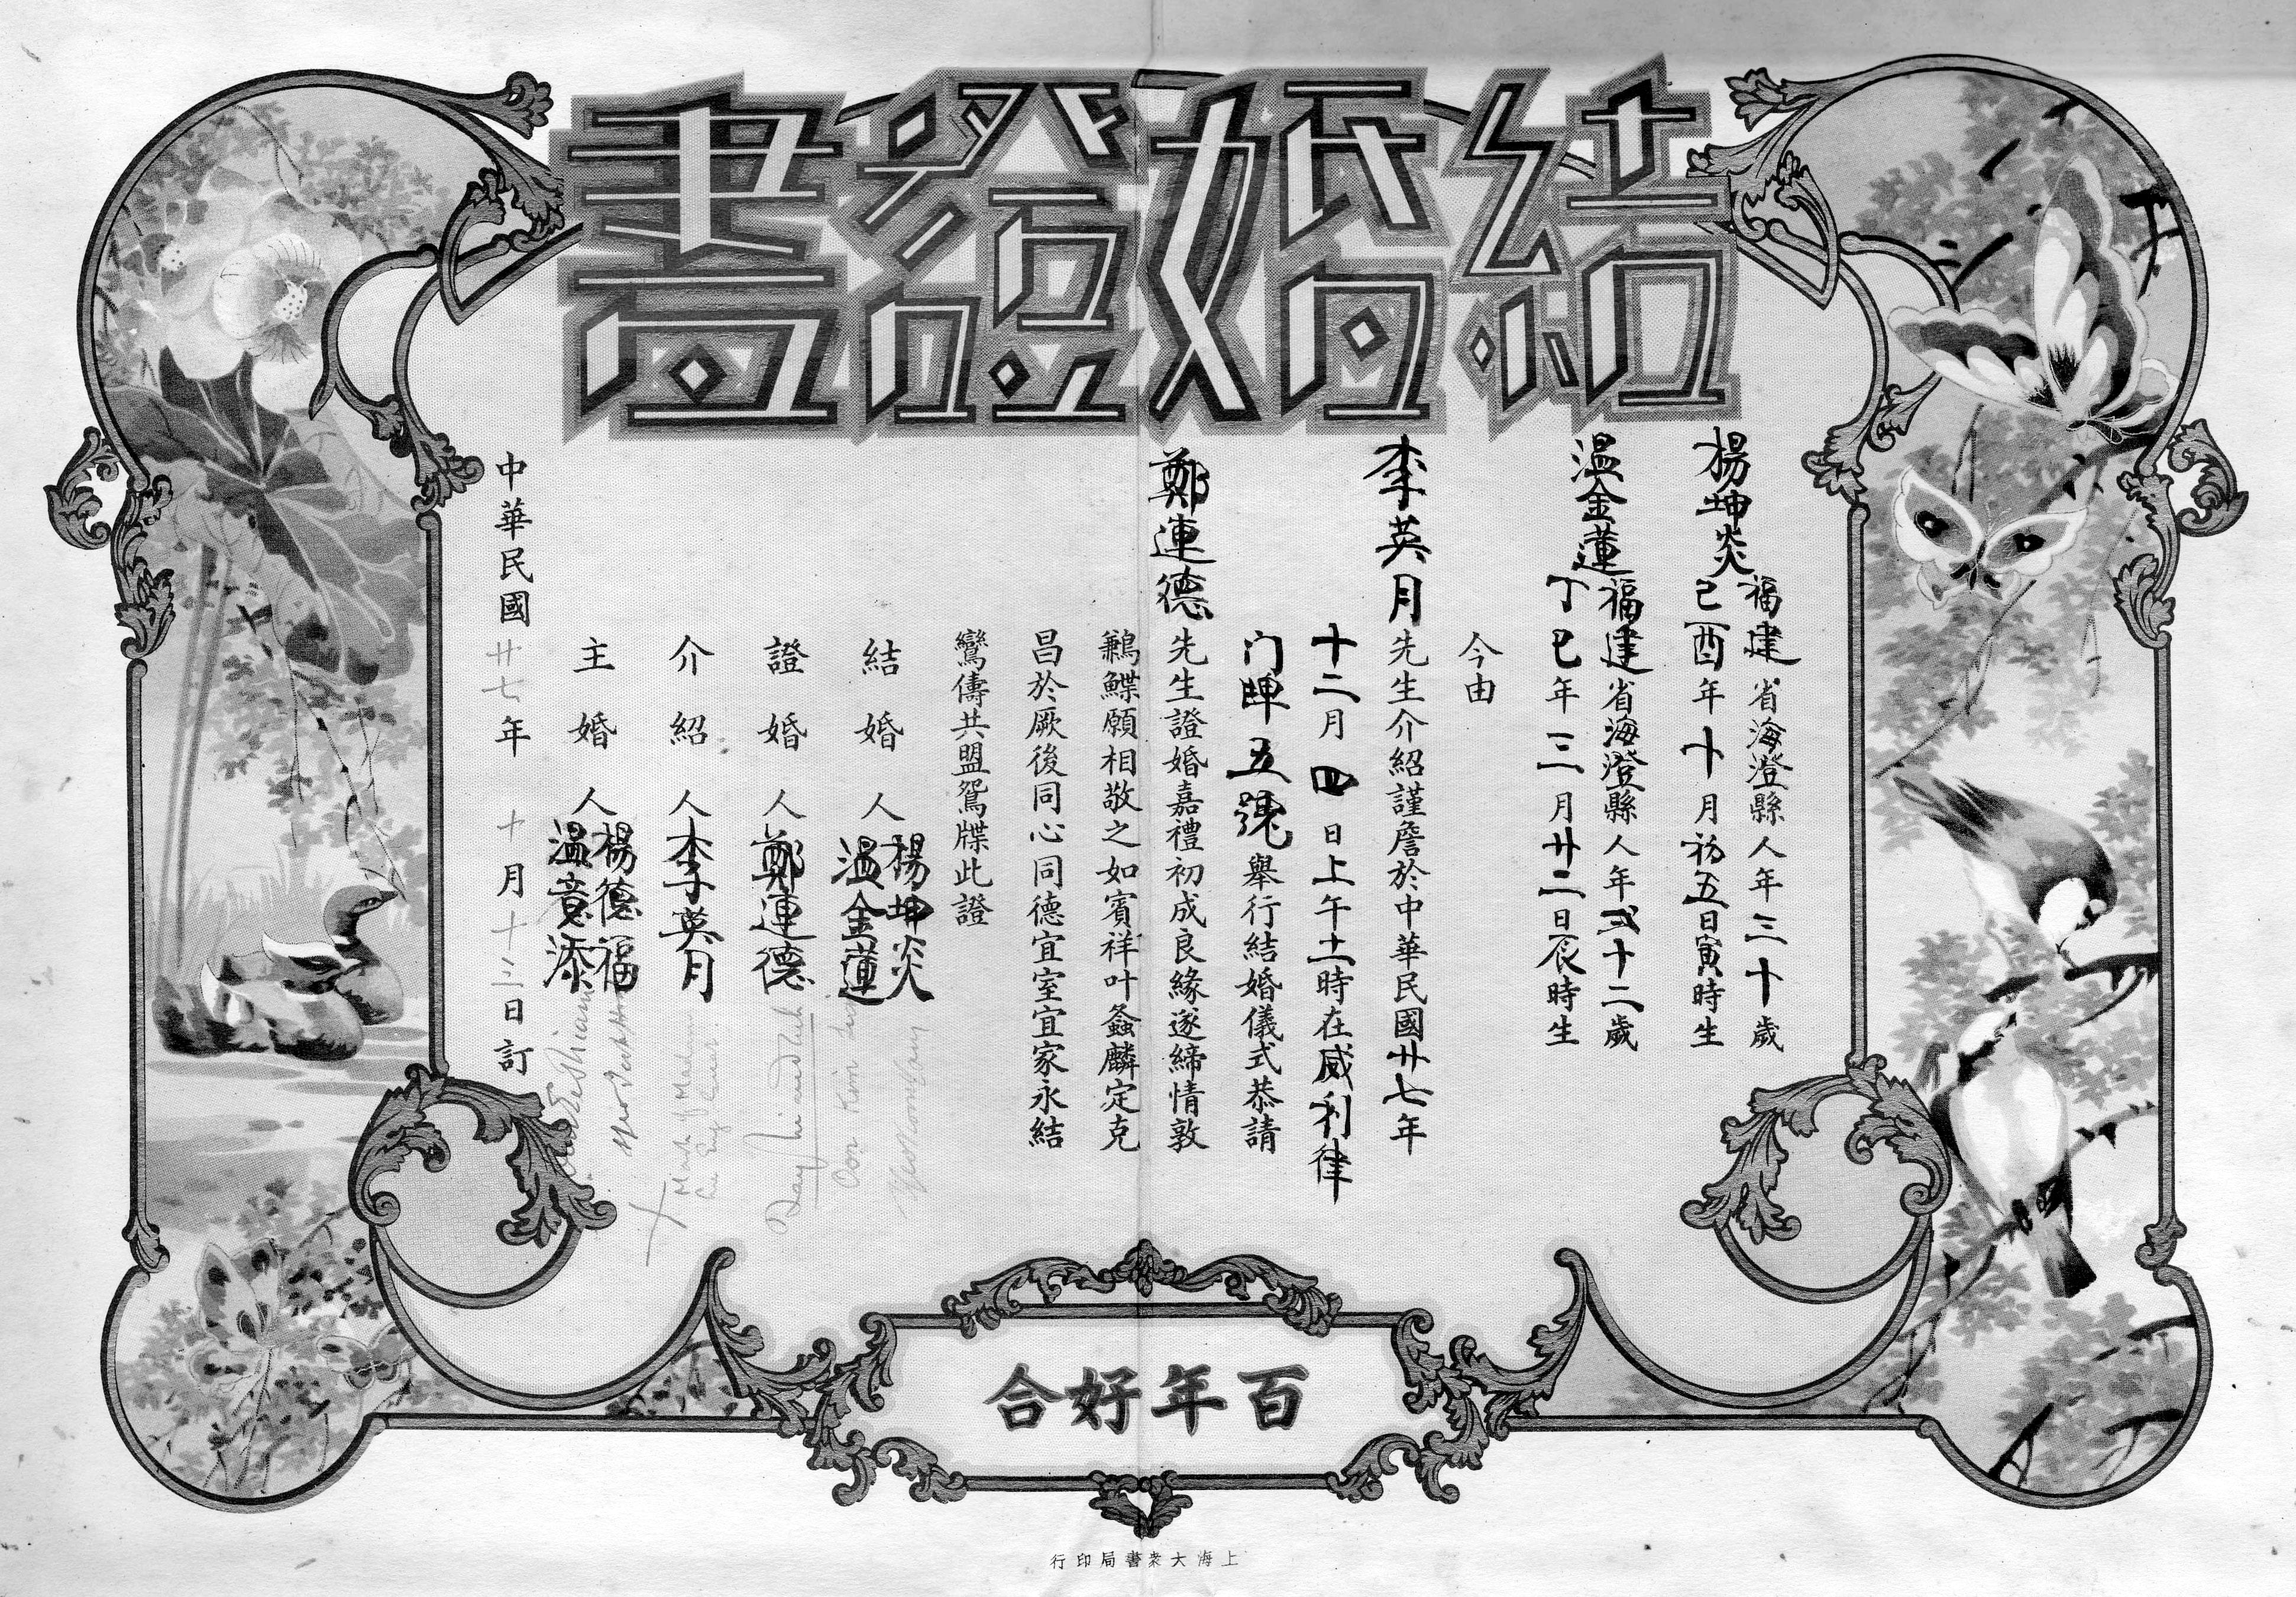 結婚證書
楊坤炎
福建省海澄縣人年三十歲
己酉年十月初五日寅時生
温金蓮
福建省海澄縣人年弍十二歲
丁巳年三月廿二日辰時生
今由
李英月先生介紹謹詹於中華民國廿七年
十二月四日上午十一時在威利律
门牌五號舉行結婚儀式恭請
鄭連德先生證婚嘉禮初成良緣遂締情敦
鶼鰈願相敬之如賓祥叶螽麟定克
昌於厥後同心同德宜室宜家永結
鸞儔共盟鴛牒此證
結婚人
楊坤炎
温金蓮
證婚人鄭連德
介紹人李英月
Mark of Madam
主婚人
楊德福
温意添
中華民國廿七年十月十三日訂
百年好合
上海大衆書局印行